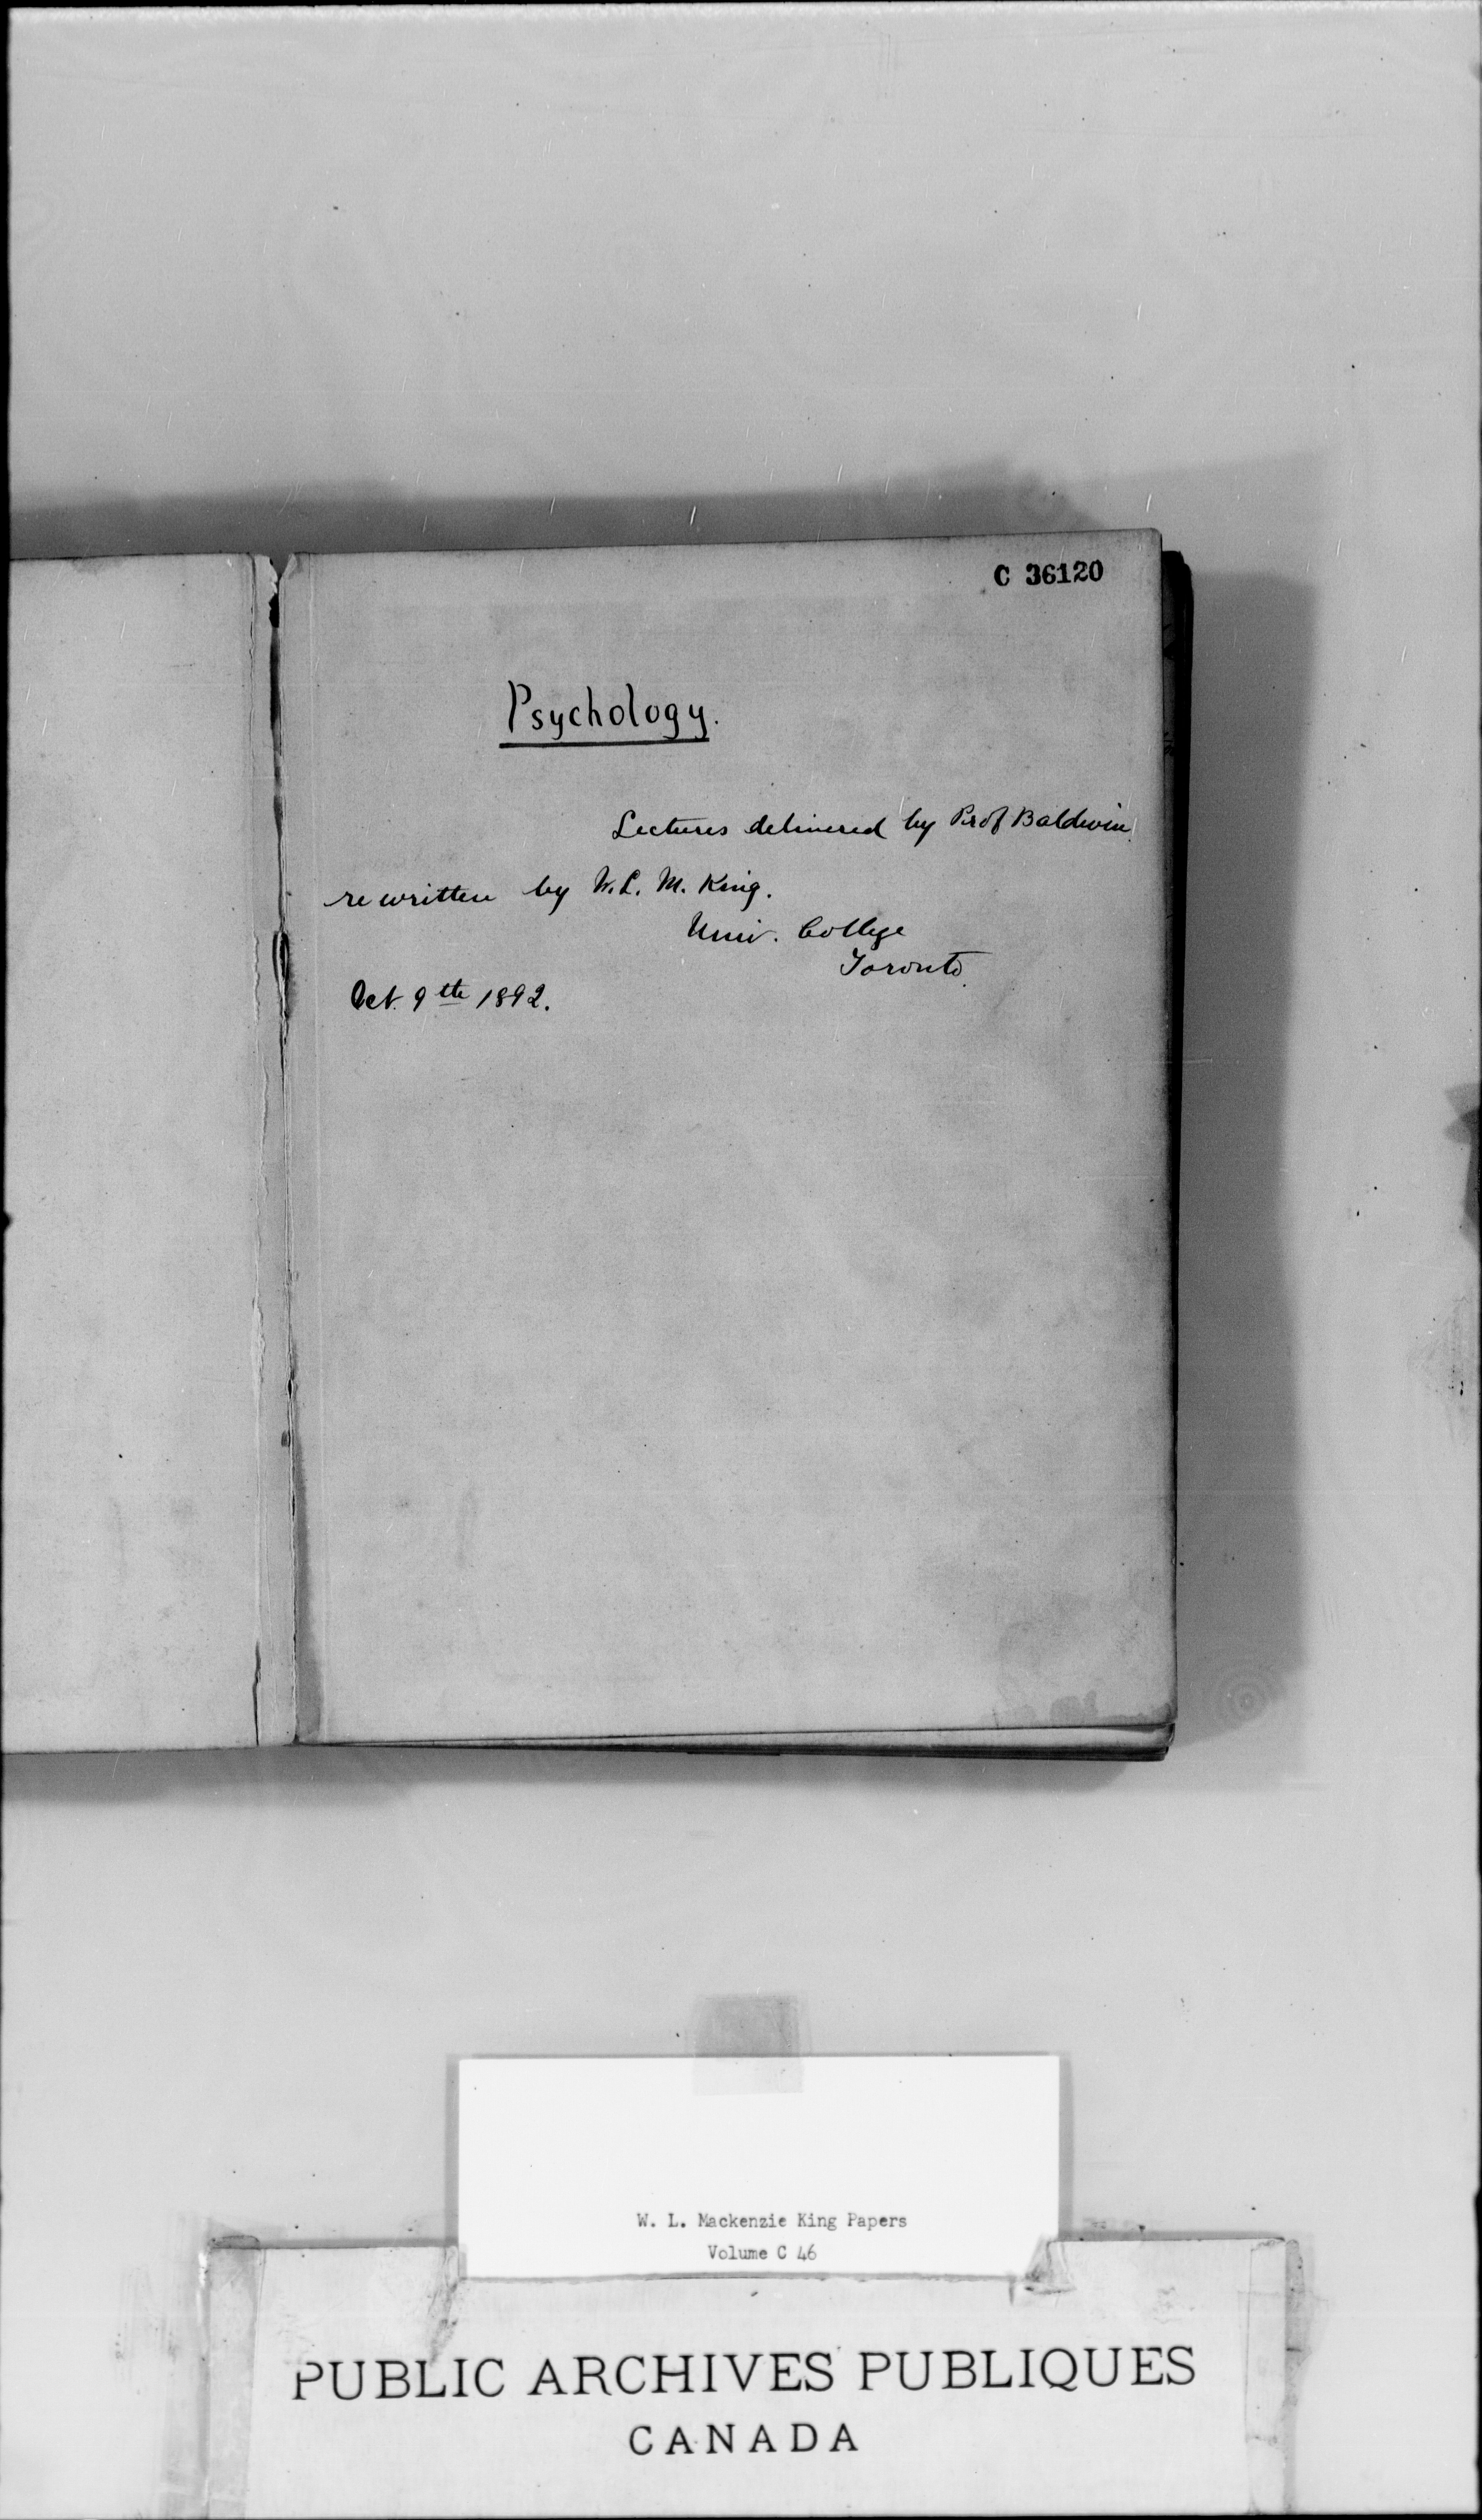 C 36120
Psychology.
Lectures delivered by Prof Baldwin
re written by W. L. M. King.
Univ. College
Toronto.
Oct. 9th 1892.
W. L. Mackenzie King Papers
Volume C 46
PUBLIC ARCHIVES PUBLIQUES
CANADA